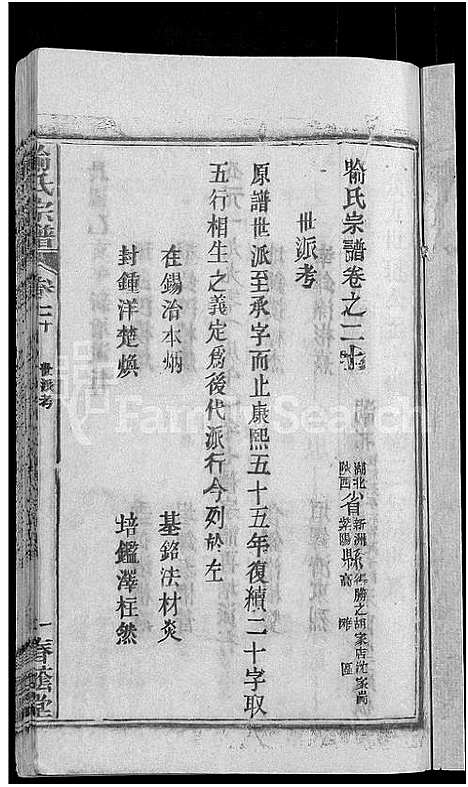 喻氏宗譜卷之二十 湖北 陝西 省 新洲 紫陽 縣 勝之胡家店沈家崗 高灘區
世派考
原譜世派至承字而止康熙五十五年復續二十字取
五行相生之義定為後代派行今列於左
在錫治本炳 基銘法材炎
封鍾洋楚煥 培鑑澤柱然
喻氏宗譜 卷二十 世派考 一 春蔭堂
FamilySearch